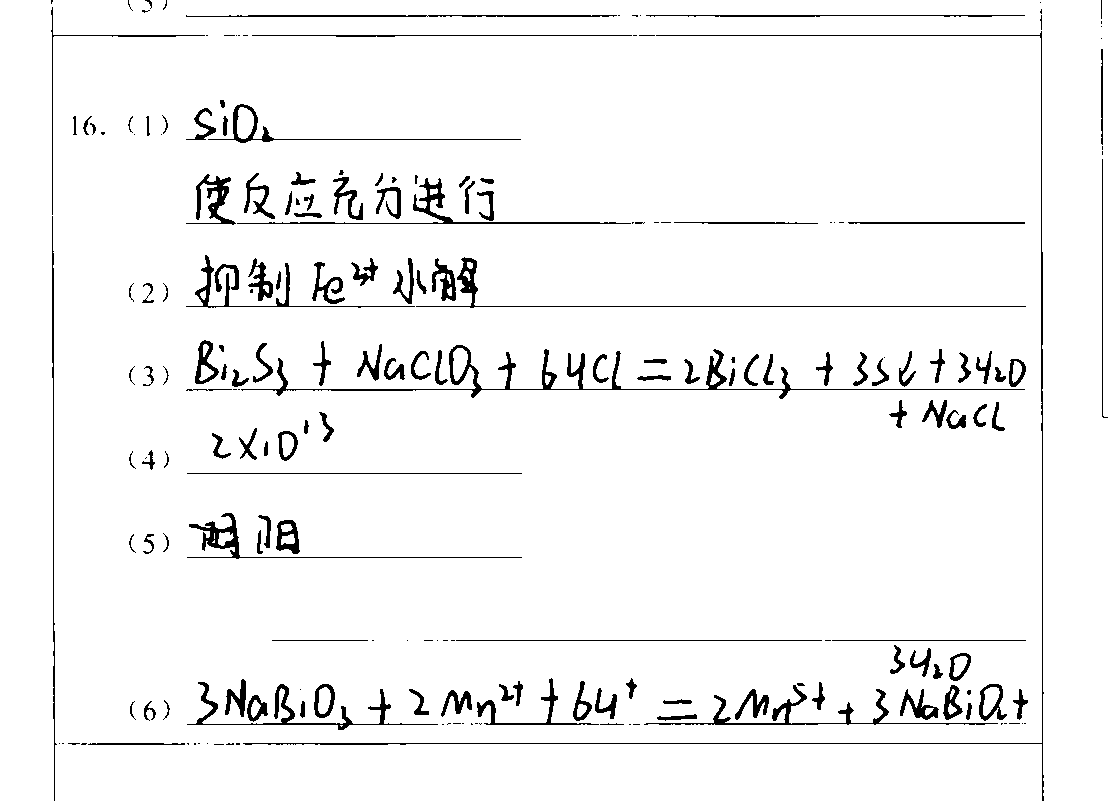 (5)
16. (1) SiO₂
使反应充分进行
(2) 抑制 Fe²⁺ 水解
(3) Bi₂S₃ + NaClO₃ + 6HCl = 2BiCl₃ + 3S↓ + 3H₂O
+ NaCl
(4) 2×10¹³
(5) 阳
3H₂O
(6) 3NaBiO₃ + 2Mn²⁺ + 6H⁺ = 2Mn⁵⁺ + 3NaBiO₂ +